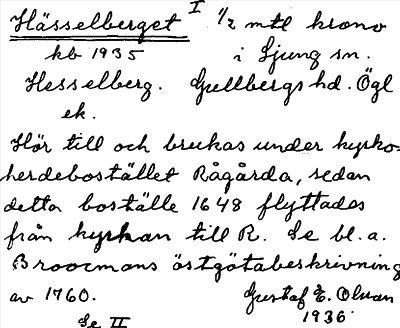 Hässelberget I 1/2 mtl krono
kb 1935 i Ljung sn.
Hesselberg. Gullbergs hd. Ögl
ek.
Hör till och brukas under kyrko-
herdebostället Rågårda, sedan
detta boställe 1648 flyttades
från kyrkan till R. Se bl.a.
Broocmans östgötabeskrivning
av 1760. Gustaf E. Olsson
Se II 1936